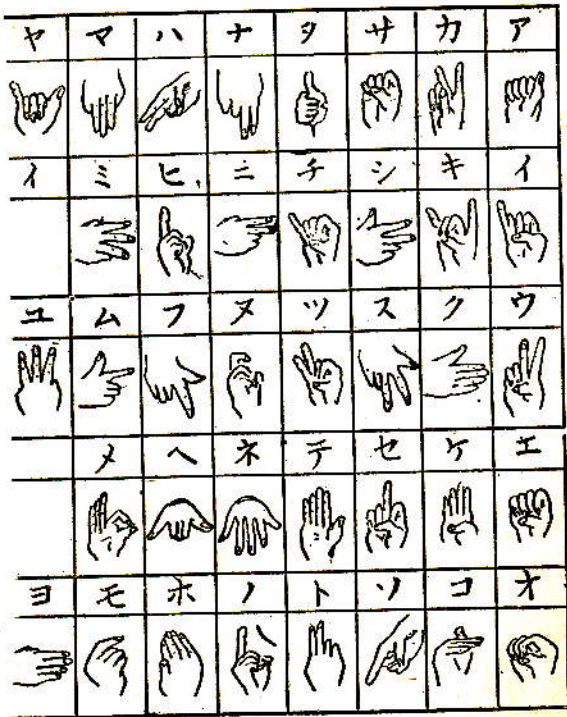 ヤ マ ハ ナ タ サ カ ア
イ ミ ヒ ニ チ シ キ イ
ユ ム フ ヌ ツ ス ク ウ
メ ヘ ネ テ セ ケ エ
ヨ モ ホ ノ ト ソ コ オ